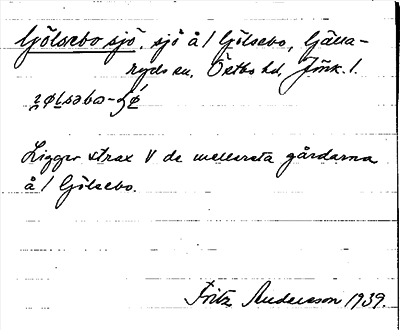 Gölsebo sjö, sjö å/ Gölsebo, Gälla-
ryds sn, Östbo hd, Jönk. l.
Ligger strax V de mellersta gårdarna
å/ Gölsebo.
Fritz Andersson 1939.